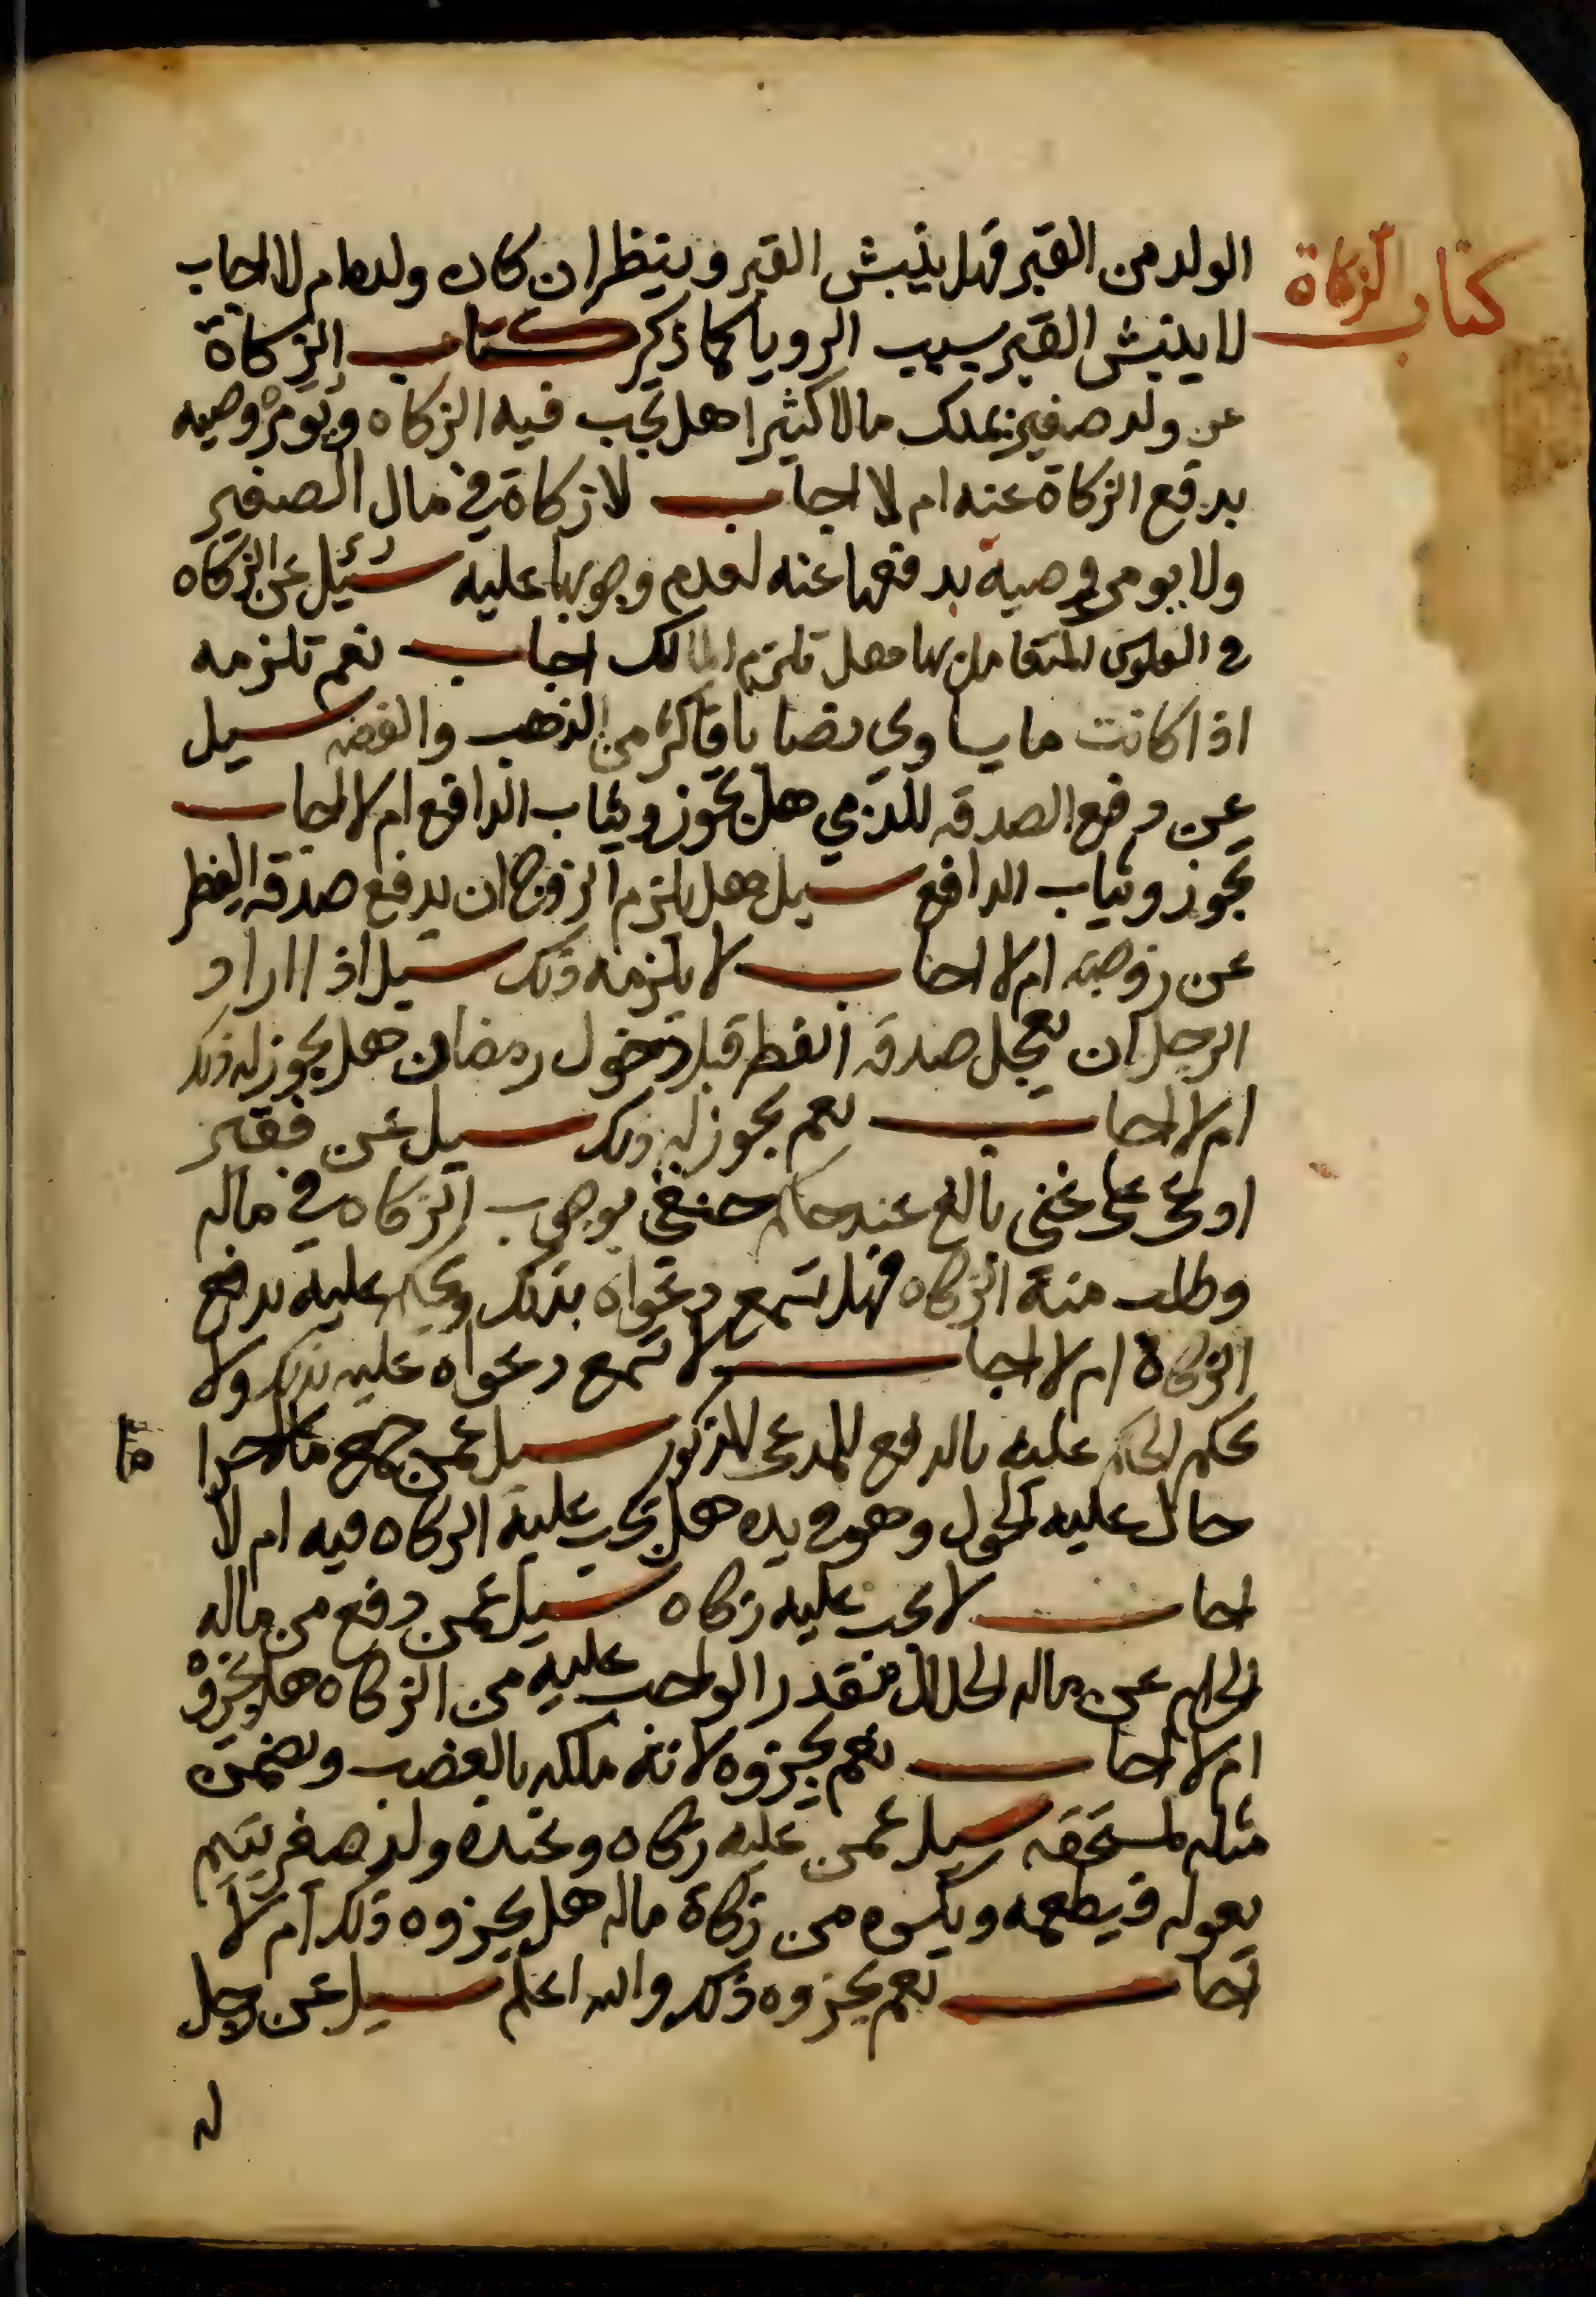 كتاب الزكاة
الولد من القبر فهل ينبش القبر وينظر ان كان ولدها ام لا اجاب
لا ينبش القبر بسبب الرويا كما ذكر كتاب الزكاة
عن ولد صغير يملك مالا كثيرا هل يجب فيه الزكاه ويومر وصيه
بدفع الزكاة عنه ام لا اجاب لا زكاة في مال الصغير
ولا يومر وصيه بدفعها عنه لعدم وجوبها عليه سئيل عن الزكاه
في الفلوس المتعامل بها هل تلزم المالك اجاب نعم تلزمه
اذا كانت ما يساوي نصابا فاكثر من الذهب والفضه سيل
عن دفع الصدقه للذمي هل يجوز ويثاب الدافع ام لا اجاب
يجوز ويثاب الدافع سيل هل يلزم الزوج ان يدفع صدقه الفطر
عن زوجته ام لا اجاب لا يلزمه ذلك سيل اذا اراد
الرجل ان يعجل صدقه الفطر قبل دخول رمضان هل يجوز له ذلك
ام لا اجاب نعم يجوز له ذلك سيل عن فقير
ادعى على غني بالغ عند حاكم حنفي بوجوب الزكاه في ماله
وطلب منه الزكاه فهل تسمع دعواه بذلك ويحكم عليه بدفع
الزكاة ام لا اجاب لا تسمع دعواه عليه بذلك ولا
يحكم الحاكم عليه بالدفع للمدعي المذكور سيل عمن جمع مالا حراما
حال عليه الحول وهو في يده هل يجب عليه الزكاه فيه ام لا
اجاب لا يجب عليه زكاه سيل عمن دفع من ماله
الحرام عن ماله الحلال بقدر الواجب عليه من الزكاه هل يجزوه
ام لا اجاب نعم يجزوه لانه ملكه بالغصب ويضمن
مثله لمستحقه سيل عمن عليه زكاه وعنده ولد صغير يتيم
يعوله فيطعمه ويكسوه من زكاة ماله هل يجزوه ذلك ام لا
اجاب نعم يجزوه ذلك والله اعلم سيل عن رجل
له